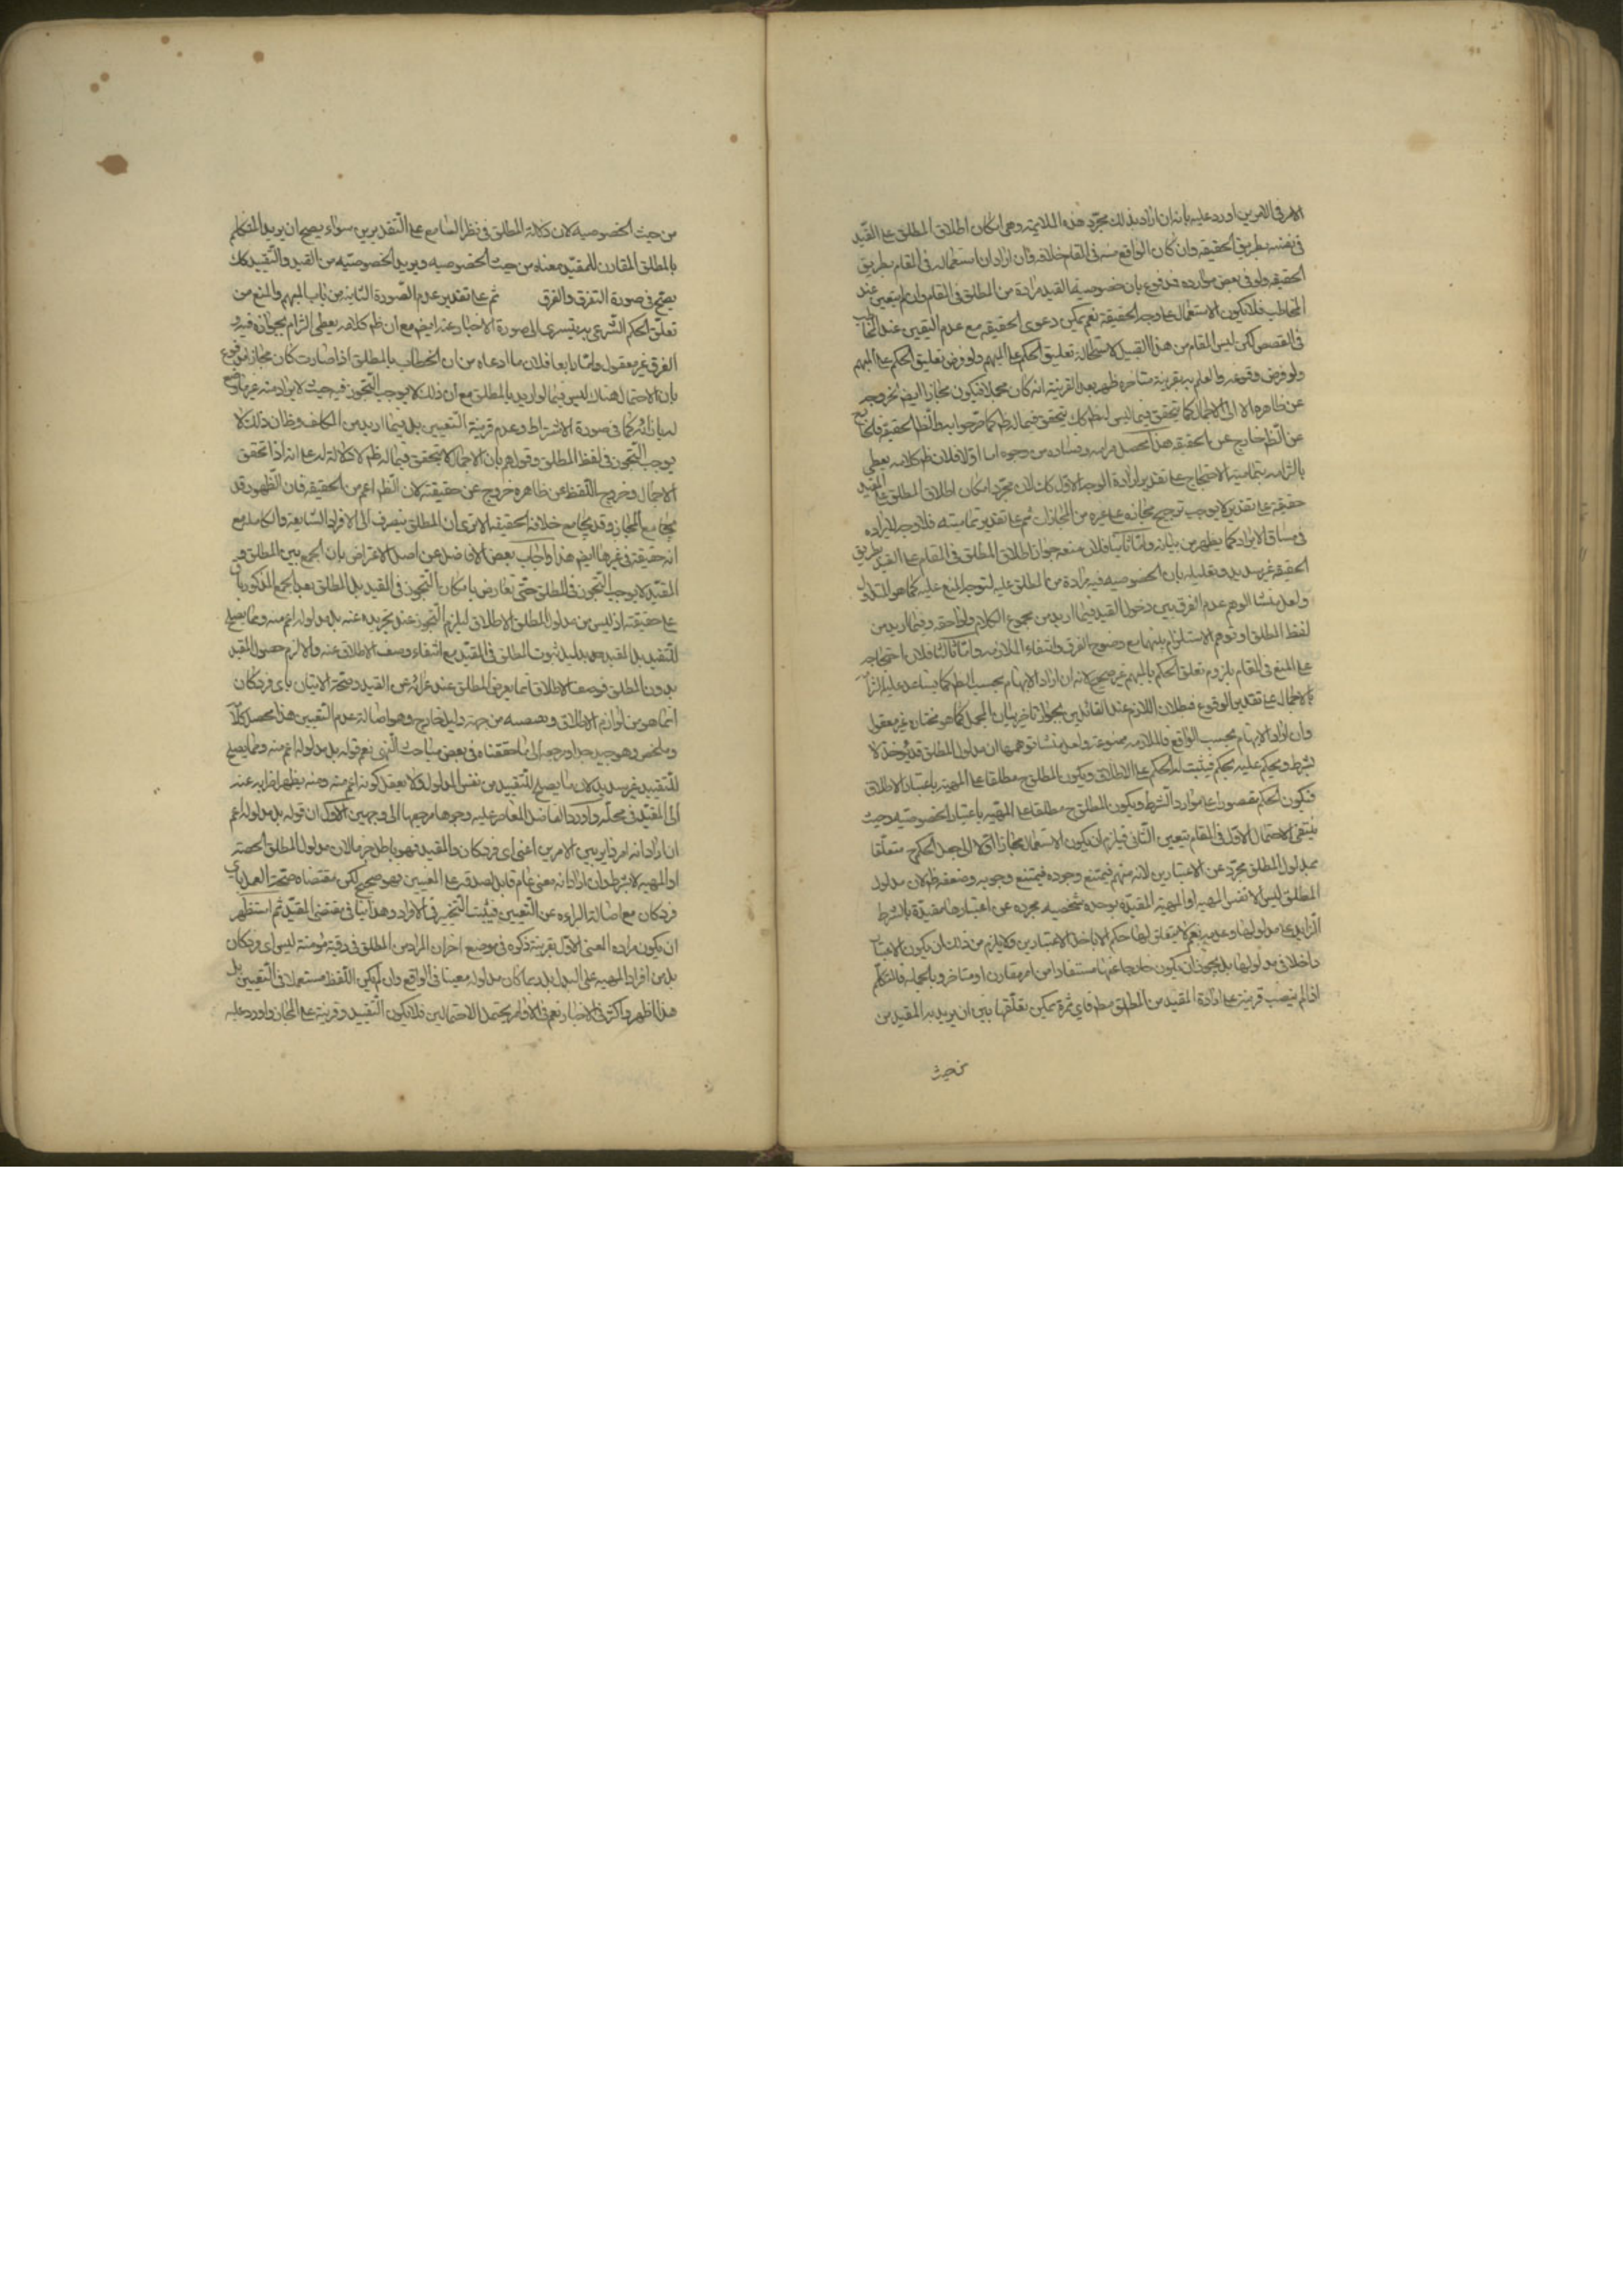 الامر في الامرين اورد عليه بانه ان اراد بذلك مجرد هذه الملايمة وهي امكان اطلاق المطلق على القيد
في نفسه بطريق الحقيقة وان كان الواقع منه في المقام خلافه وان اراد ان استعماله في المقام بطريق
الحقيقة ولو في بعض موارده فمدفوع بان خصوصية القيد مرادة من المطلق في المقام وان لم يتعين عند
المخاطب فلا يكون الاستعمال على وجه الحقيقة نعم يمكن دعوى الحقيقة مع عدم التعيين عند المخاطب
في القصص لكن ليس المقام من هذا القبيل لاستحالة تعليق الحكم على المبهم ولو فرض تعليق الحكم على المبهم
ولو فرض وقوعه والعلم به بقرينة متاخرة ظهر بعد القرينة انه كان مجملا فيكون مجازا ايضا لخروجه
عن ظاهره الى الاجمال كما يتحقق فيما ليس له ظم كك يتحقق فيما له ظم كما مر جوابه والظم الحقيقة فالخارج
عن الظم خارج عن الحقيقة هذا محصل مرامه وفساده من وجوه اما اولا فلان ظم كلامه يعطي
بالتزامه بتمامية الاحتجاج على تقدير ارادة الوجه الاول كك لان مجرد امكان اطلاق المطلق على المقيد
حقيقة على تقدير لا يوجب ترجيح مجازه على غيره من المجازات ثم على تقدير تماميته فلا وجه لايراده
في مساق الايراد كما يظهر من بيانه واما ثانيا فلان منعه جواز اطلاق المطلق في المقام على القيد بطريق
الحقيقة غير سديد وتعليله بان الخصوصية فيه مرادة من المطلق عليه لتوجه المنع عليه كما هو المتداول
ولعل منشا الوهم عدم الفرق بين دخول القيد فيما اريد من مجموع الكلام ولواحقه وفيما اريد من
لفظ المطلق او توهم الاستلزام بينهما مع وضوح الفرق وانتفاء الملازمة واما ثالثا فلان احتجاجه
على المنع في المقام بلزوم تعلق الحكم بالمبهم غير صحيح لانه ان اراد الابهام بحسب الظم كما يساعد عليه التزامه
بالاجمال على تقدير الوقوع فبطلان اللازم عند القائلين بجواز تاخير بيان المجمل كما هو مختاره غير معقول
وان اراد الابهام بحسب الواقع فالملازمة ممنوعة ولعل منشا توهمها ان مدلول المطلق قد يؤخذ لا
بشرط ويحكم عليه بحكم فيثبت له الحكم على الاطلاق ويكون المطلق ح مطلقا على المهية باعتبار الاطلاق
فيكون الحكم مقصورا على موارد الشرط ويكون المطلق ح مطلقا على المهية باعتبار الخصوصية وحيث
ينتفي الاحتمال الاول في المقام يتعين الثاني فيلزم ان يكون الاستعمال مجازا الى جعل الحكم ح متعلقا
بمدلول المطلق مجردا عن الاعتبارين لانه مبهم فيمتنع وجوده فيمتنع وجوبه وضعفه ظم لان مدلول
المطلق ليس الا نفس المهية او المهية المقيدة بوحدة شخصية مجردة عن اعتبارها مقيدة بالشرط
الزايد على مدلولها وعدمه نعم لا يتعلق لها حكم الا باحد الاعتبارين ولا يلزم من ذلك ان يكون الاعتبار
داخلا في مدلولها بل يجوز ان يكون خارجا عنها مستفادا من امر مقارن او متاخر وبالجملة فالمتكلم
اذا لم ينصب قرينة على ارادة المقيد من المطلق مطم فاي ثمرة يمكن تعلقها بين ان يريد به المقيد من
من حيث
من حيث الخصوصية لان دلالة المطلق في نظر السامع على التقديرين سواء يصح ان يريد المتكلم
بالمطلق المقارن للمقيد معناه من حيث الخصوصية ويريد الخصوصية من القيد والتقييد كك
يصح في صورة التفرق والفرق ثم على تقدير عدم الصورة الثانية من باب المبهم والمنع من
تعلق الحكم الشرعي به يتسرى الى صورة الاخبار عنه ايضا مع ان ظم كلامه يعطي التزام بجوازه فيه و
الفرق غير معقول واما رابعا فلان ما ادعاه من ان الخطاب بالمطلق اذا صارت كان مجازا مدفوع
بان الاحتمال هناك ليس فيما لو اريد بالمطلق مع ان ذلك لا يوجب التجوز فيه حيث لا يراد منه غير ما وضع
له بازائه كما في صورة الاشتراط وعدم قرينة التعيين بل فيما اريد من المكلف وظان ذلك لا
يوجب التجوز في لفظ المطلق وقولهم بان الاجمال لا يتحقق فيما له ظم لا دلالة له على انه اذا تحقق
الاجمال وخروج اللفظ عن ظاهره خروج عن حقيقته لان الظم اعم من الحقيقة فان الظهور قد
يجامع المجاز وقد يجامع خلافه الحقيقة الا ترى ان المطلق ينصرف الى الافراد الشايعة والكاملة مع
انه حقيقة في غيرها ايضا هذا واجاب بعض الافاضل عن اصل الاعتراض بان الجمع بين المطلق و
المقيد لا يوجب التجوز في المطلق حتى تعارض بامكان التجوز في القيد بل المطلق بعد الجمع المذكور باق
على حقيقته اذ ليس من مدلول المطلق الاطلاق ليلزم التجوز عند تجريده عنه بل مدلوله اعم منه ومما يصلح
للتقييد بل المقيد مع بدليل ثبوت المطلق في المقيد مع انتفاء وصف الاطلاق عنه والا لزم حصول المقيد
بدون المطلق فوصف الاطلاق انما يعرض المطلق عند عرائه عن القيد وصحة الاتيان باي فرد كان
انما هو من لوازم الاطلاق وبنفسه من جهة دليل خارج وهو اصالة عدم التعيين هذا محصل كلامه
وملخصه وهو جيد جدا ورجعه الى ما حققناه في بعض مباحث النهي نعم قوله بل مدلوله اعم منه ومما يصلح
للتقييد غير سديد لان ما يصلح للتقييد من نفس المدلول فلا يعقل كونه اعم منه ومنه يظهر اضرابه عنه
الى المقيد في محله واورد الفاضل المعاصر عليه وجوها مرجعها الى وجهين الاول ان قوله بل مدلوله اعم
ان اراد انه امر داير بين الامرين اعني اي فرد كان والمقيد فهو باطل جزما لان مدلول المطلق الحصة
او المهية لا بشرط وان اراد انه معنى عام قابل لصدقه على المعنيين فهو صحيح لكن مقتضاه صحة العمل باي
فرد كان مع اصالة البراءة عن التعيين فيثبت التخيير في الافراد وهذا ينافي مقتضى المقيد ثم استظهر
ان يكون مراده المعنى الاول بقرينة ذكره في موضع اخر ان المراد من المطلق في رقبة مؤمنة ليس اي فرد كان
بل من افراد المهية على البدل بل ربما كان مدلوله معينا في الواقع وان لم يكن اللفظ مستعملا في التعيين بل
هذا ظهر واكثر في الاخبار نعم في الاوامر يحتمل الاحتمالين فلا يكون التقييد وقرينة على المجاز واورد عليه